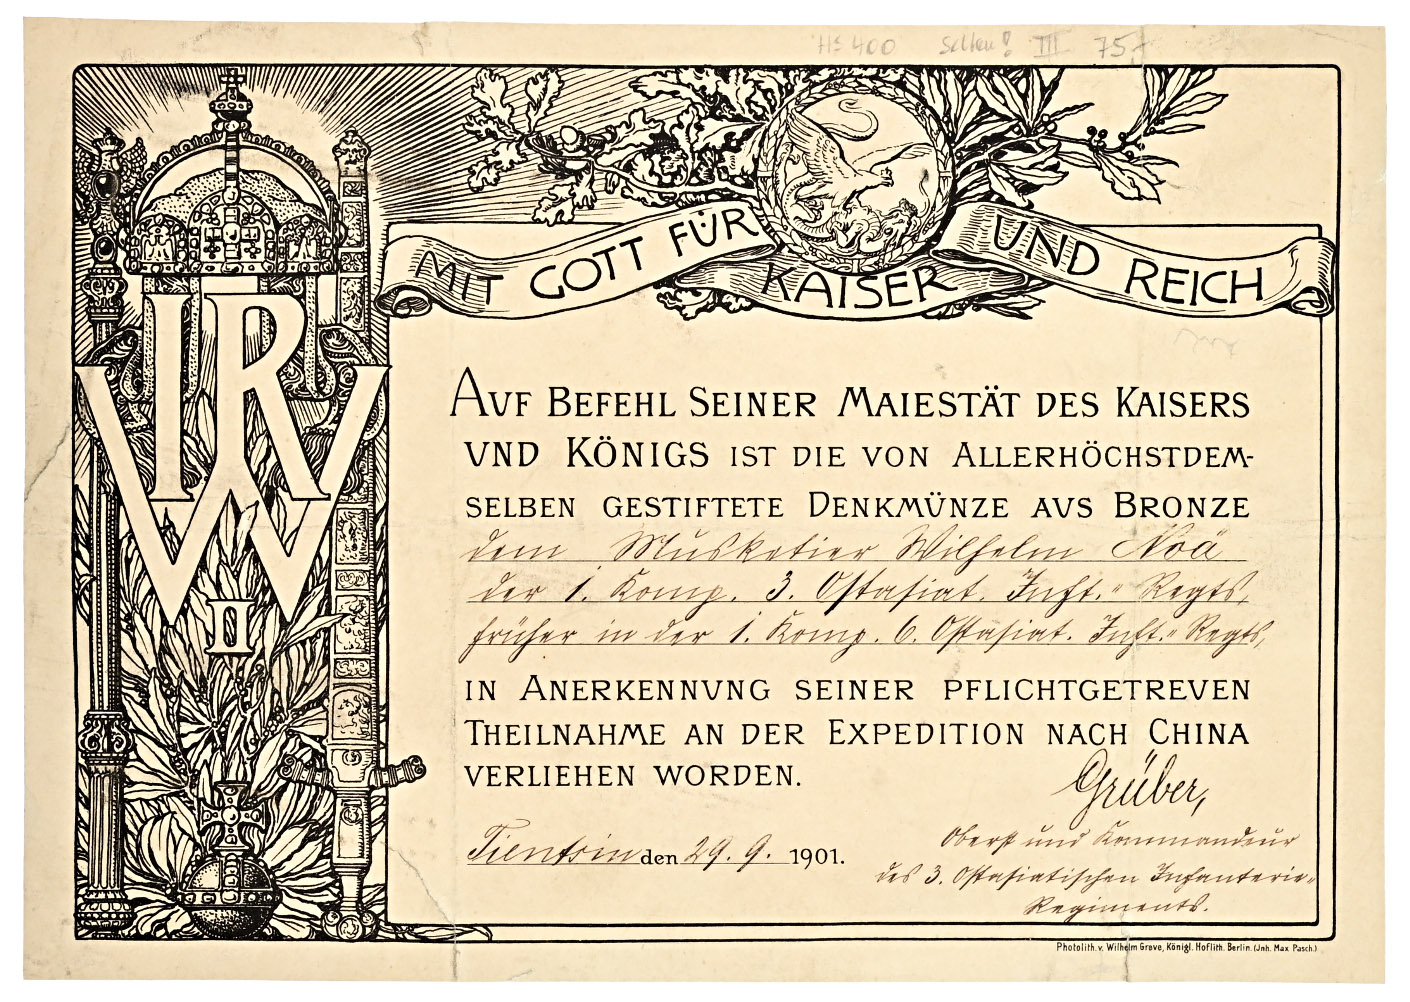 Hs 400 Selten! III 75,-
MIT GOTT FÜR KAISER UND REICH
IRW
II
AVF BEFEHL SEINER MAIESTÄT DES KAISERS
VND KÖNIGS IST DIE VON ALLERHÖCHSTDEM-
SELBEN GESTIFTETE DENKMÜNZE AVS BRONZE
dem Musketier Wilhelm Noä
der 1. Komp. 3. Ostasiat. Inft.- Regts,
früher in der 1. Komp. 6. Ostasiat. Inft.- Regts,
IN ANERKENNVNG SEINER PFLICHTGETREVEN
THEILNAHME AN DER EXPEDITION NACH CHINA
VERLIEHEN WORDEN.
Grüber,
Tientsin den 29. 9. 1901.
Oberst und Kommandeur
des 3. Ostasiatischen Infanterie-
Regiments.
Photolith. v. Wilhelm Greve, Königl. Hoflith. Berlin. (Jnh. Max Pasch.)